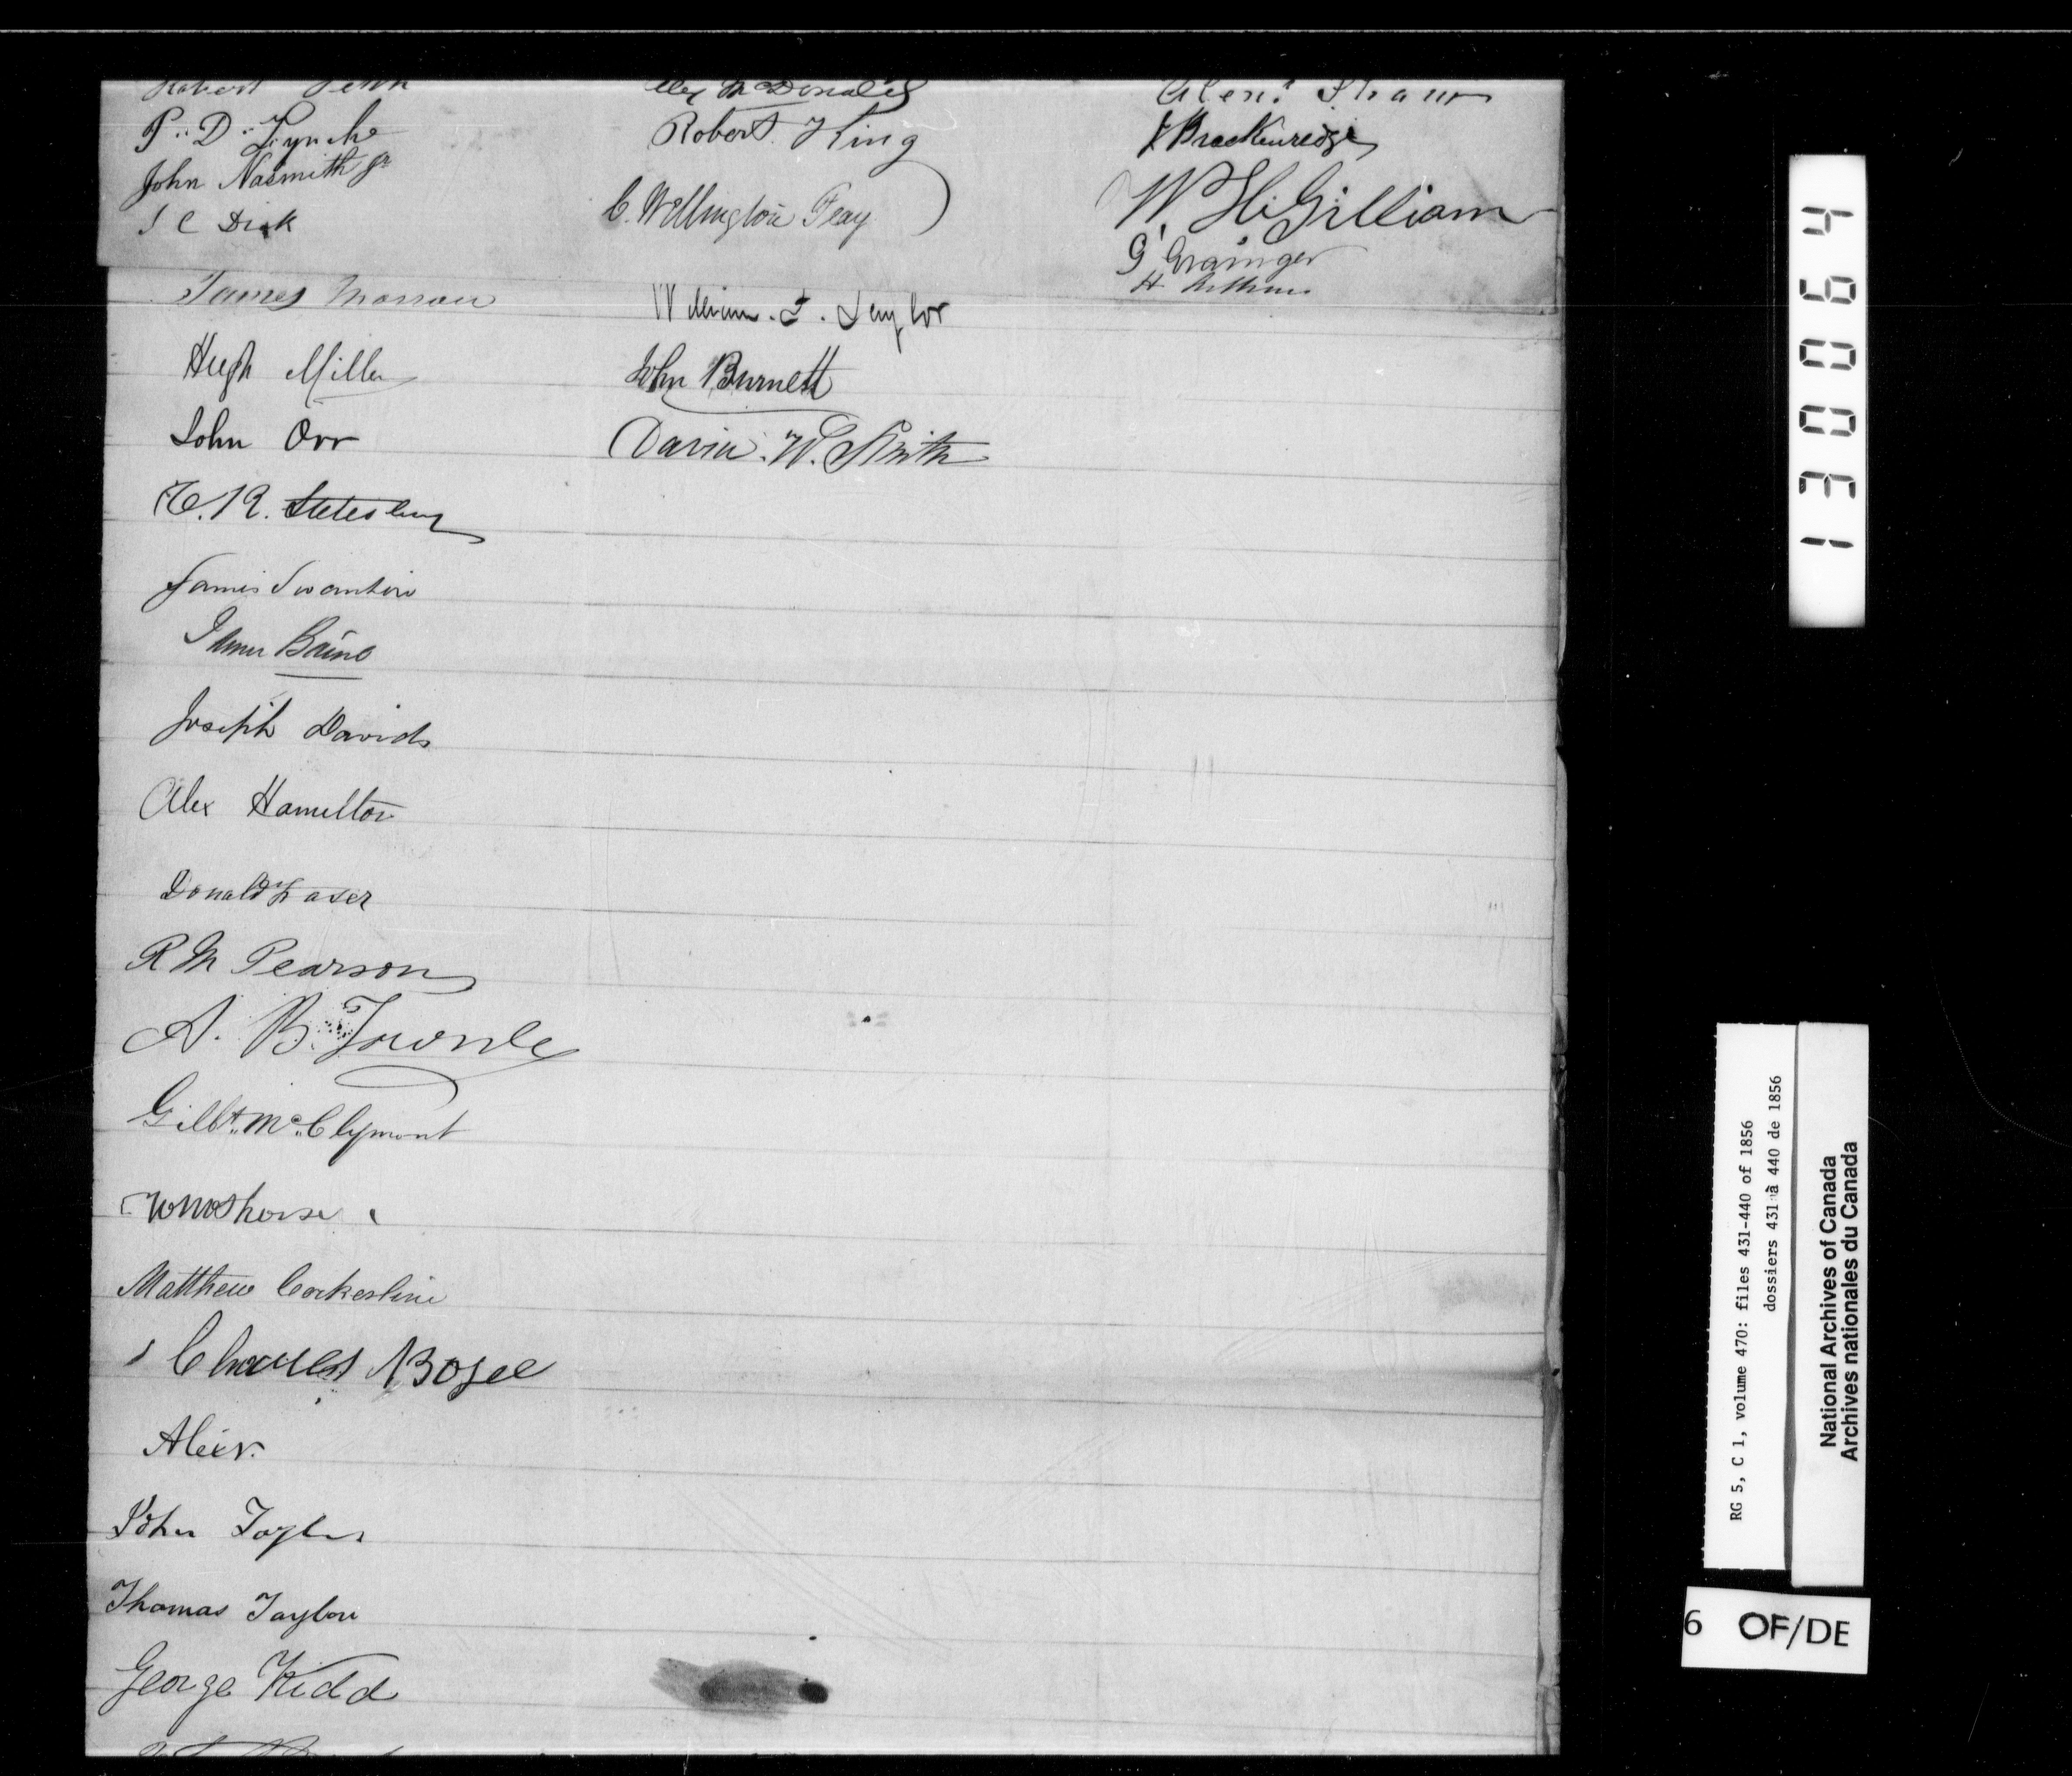 Robert
P. D. Lynch
John Nasmith Jr
J C Dick
James Morrow
Hugh Miller
John Orr
James Swanton
James Bain
Joseph Davids
Alex Hamilton
Donald Fraser
R M Pearson
A. B. Townley
Gilbt. McClymont
Matthew Cockerline
Charles
Alexr.
John Taylor
Thomas Taylor
George Kidd
Alex McDonald
Robert King
C. Wellington
William. T. Taylor
John Burnett
David. W. Smith
Alexr. Shaw
J Brackenredge
W. H. Gilliam
G. Grainger
H
130064
RG 5, C 1, volume 470: files 431-440 of 1856
dossiers 431 à 440 de 1856
National Archives of Canada
Archives nationales du Canada
6 OF/DE